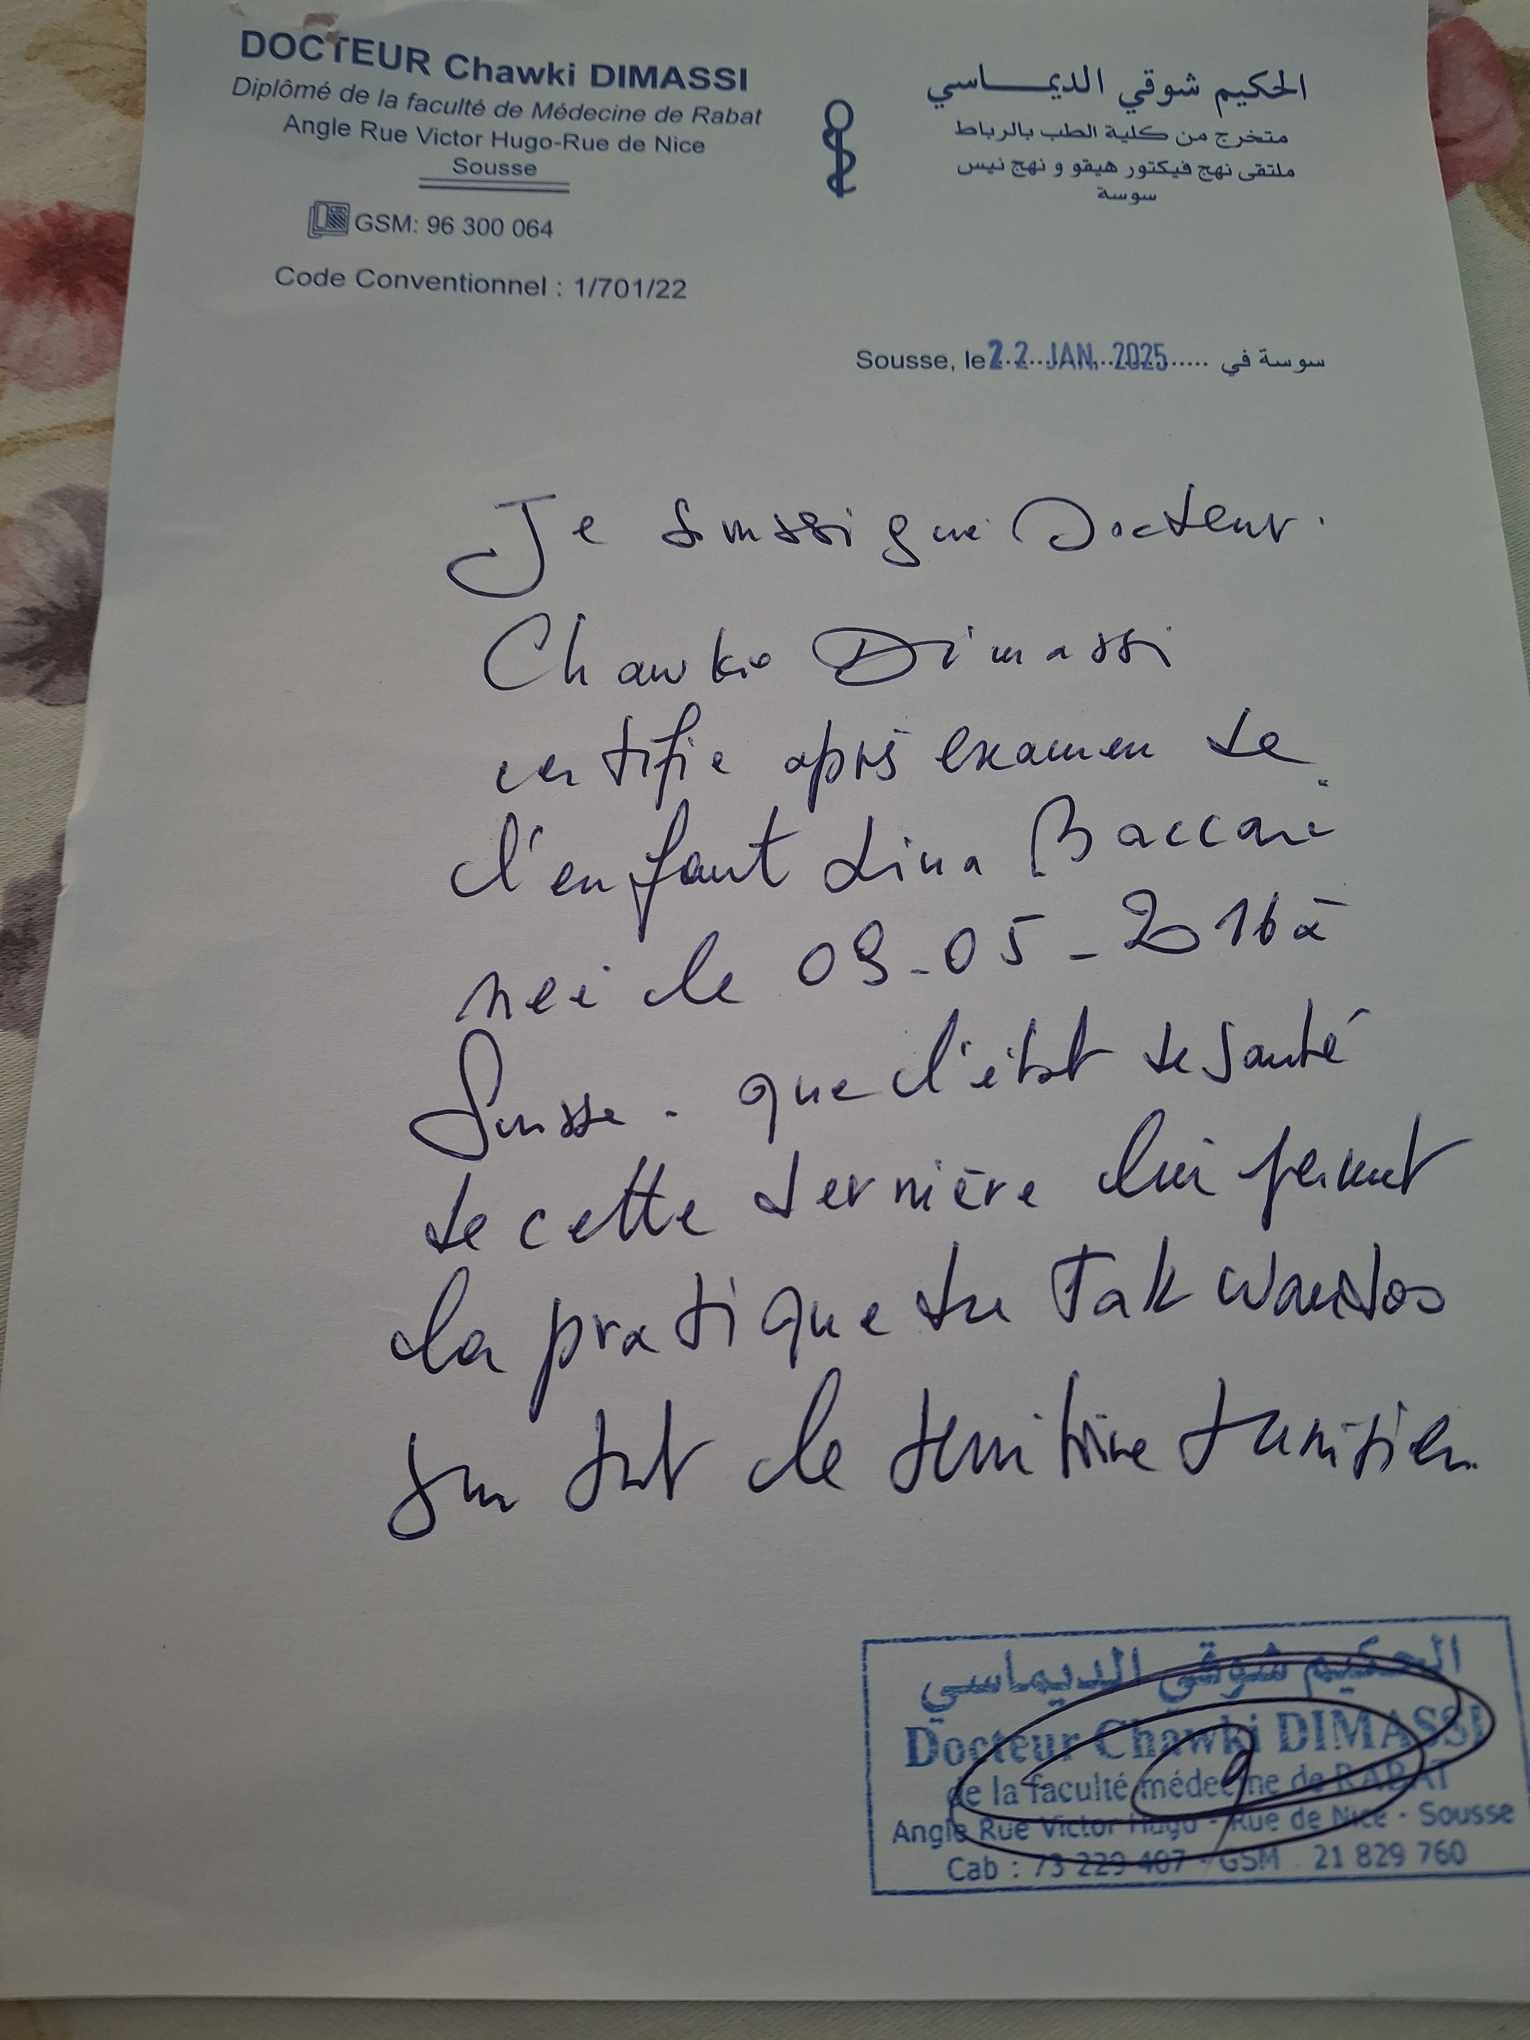 DOCTEUR Chawki DIMASSI
Diplômé de la faculté de Médecine de Rabat
Angle Rue Victor Hugo-Rue de Nice
Sousse
GSM: 96 300 064
Code Conventionnel : 1/701/22
الحكيم شوقي الديماسي
متخرج من كلية الطب بالرباط
ملتقى نهج فيكتور هيقو و نهج نيس
سوسة
Sousse, le 22 JAN. 2025 سوسة في
Je soussigné Docteur
Chawki Dimassi
certifie après examen de
l'enfant Lina Baccari
née le 09-05-2016 à
Sousse. que l'état de santé
de cette dernière lui permet
la pratique du Takwondo
sur tout le territoire tunisien
الحكيم شوقي الديماسي
Docteur Chawki DIMASSI
de la faculté médecine de RABAT
Angle Rue Victor Hugo - Rue de Nice - Sousse
Cab : 73 229 407 - GSM 21 829 760